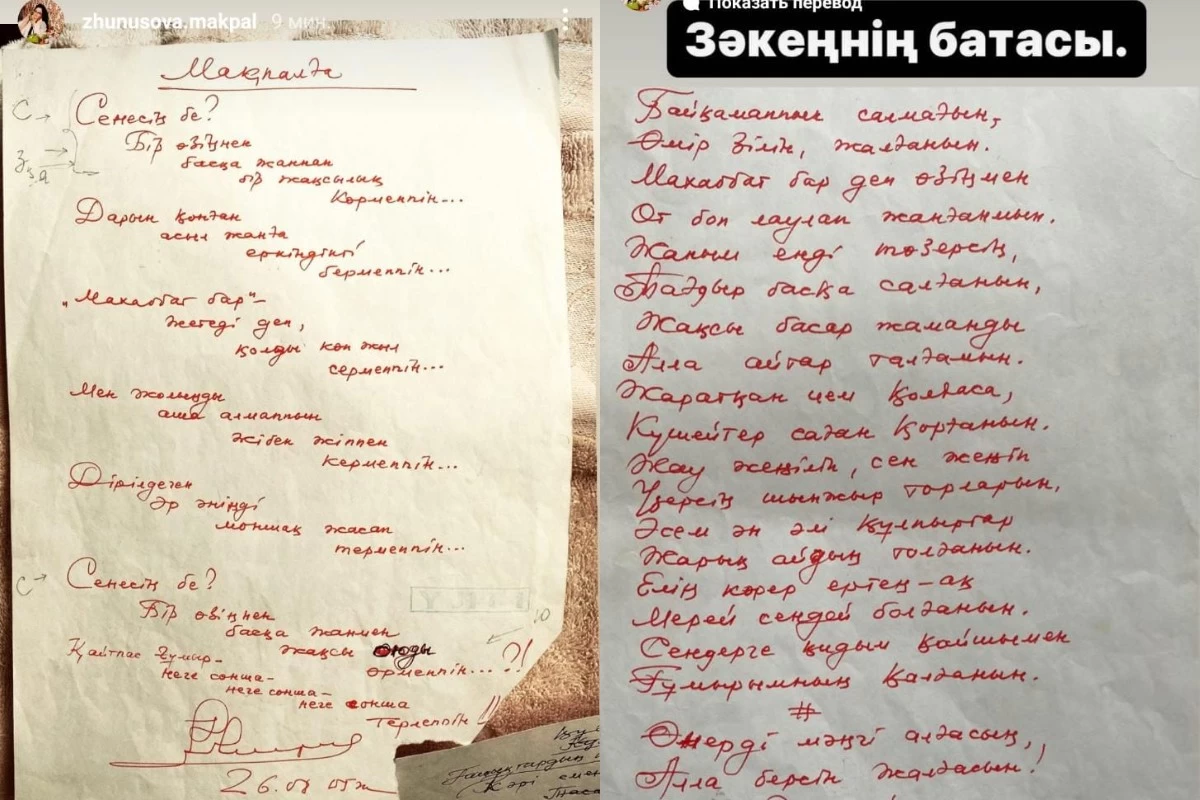 zhunusova.makpal 9 мин
Мақпалға
С→
Сенесің бе?
Бір өзіңнен
басқа жаннан
бір жақсылық
Көрменпін...
Дарын қонған
асыл жанға
еркіндікті
берменпін...
„Махаббат бар"-
Жетеді деп,
қолды көп жыл
серменпін...
Мен жолыңды
аша алмаппын
жібек жіппен
керменпін...
Дірілдеген
әр әніңді
моншақ жасап
терменпін...
С→
Сенесің бе?
Бір өзіңнен
басқа жанмен
жақсы оюды
өрменпін...?!
Қайтпас ғұмыр-
неге сонша-
неге сонша-
неге сонша
Терлеппін!!
Показать перевод
Зәкеңнің батасы.
Байқамаппын салмағын,
Өмір зілін, жалғанын.
Махаббат бар деп өзіңмен
От боп лаулап жанғанмын.
Жаным енді төзерсің,
Тағдыр басқа салғанын,
Жақсы басар жаманды
Алла айтар талғамын.
Жаратқан ием қолдаса,
Күшейтер саған қорғанын.
Жау жеңіліп, сен жеңіп
Үзерсің шынжыр торларын,
Әсем ән әлі құлпыртар
Жарық айдың толғанын.
Елің көрер ертең-ақ
Мерей сендей болғанын.
Сендерге қидым қойшымен
Ғұмырымның қалғанын.
#
Өнерді мәңгі алғасың,,
Алла берсін жалғасын!